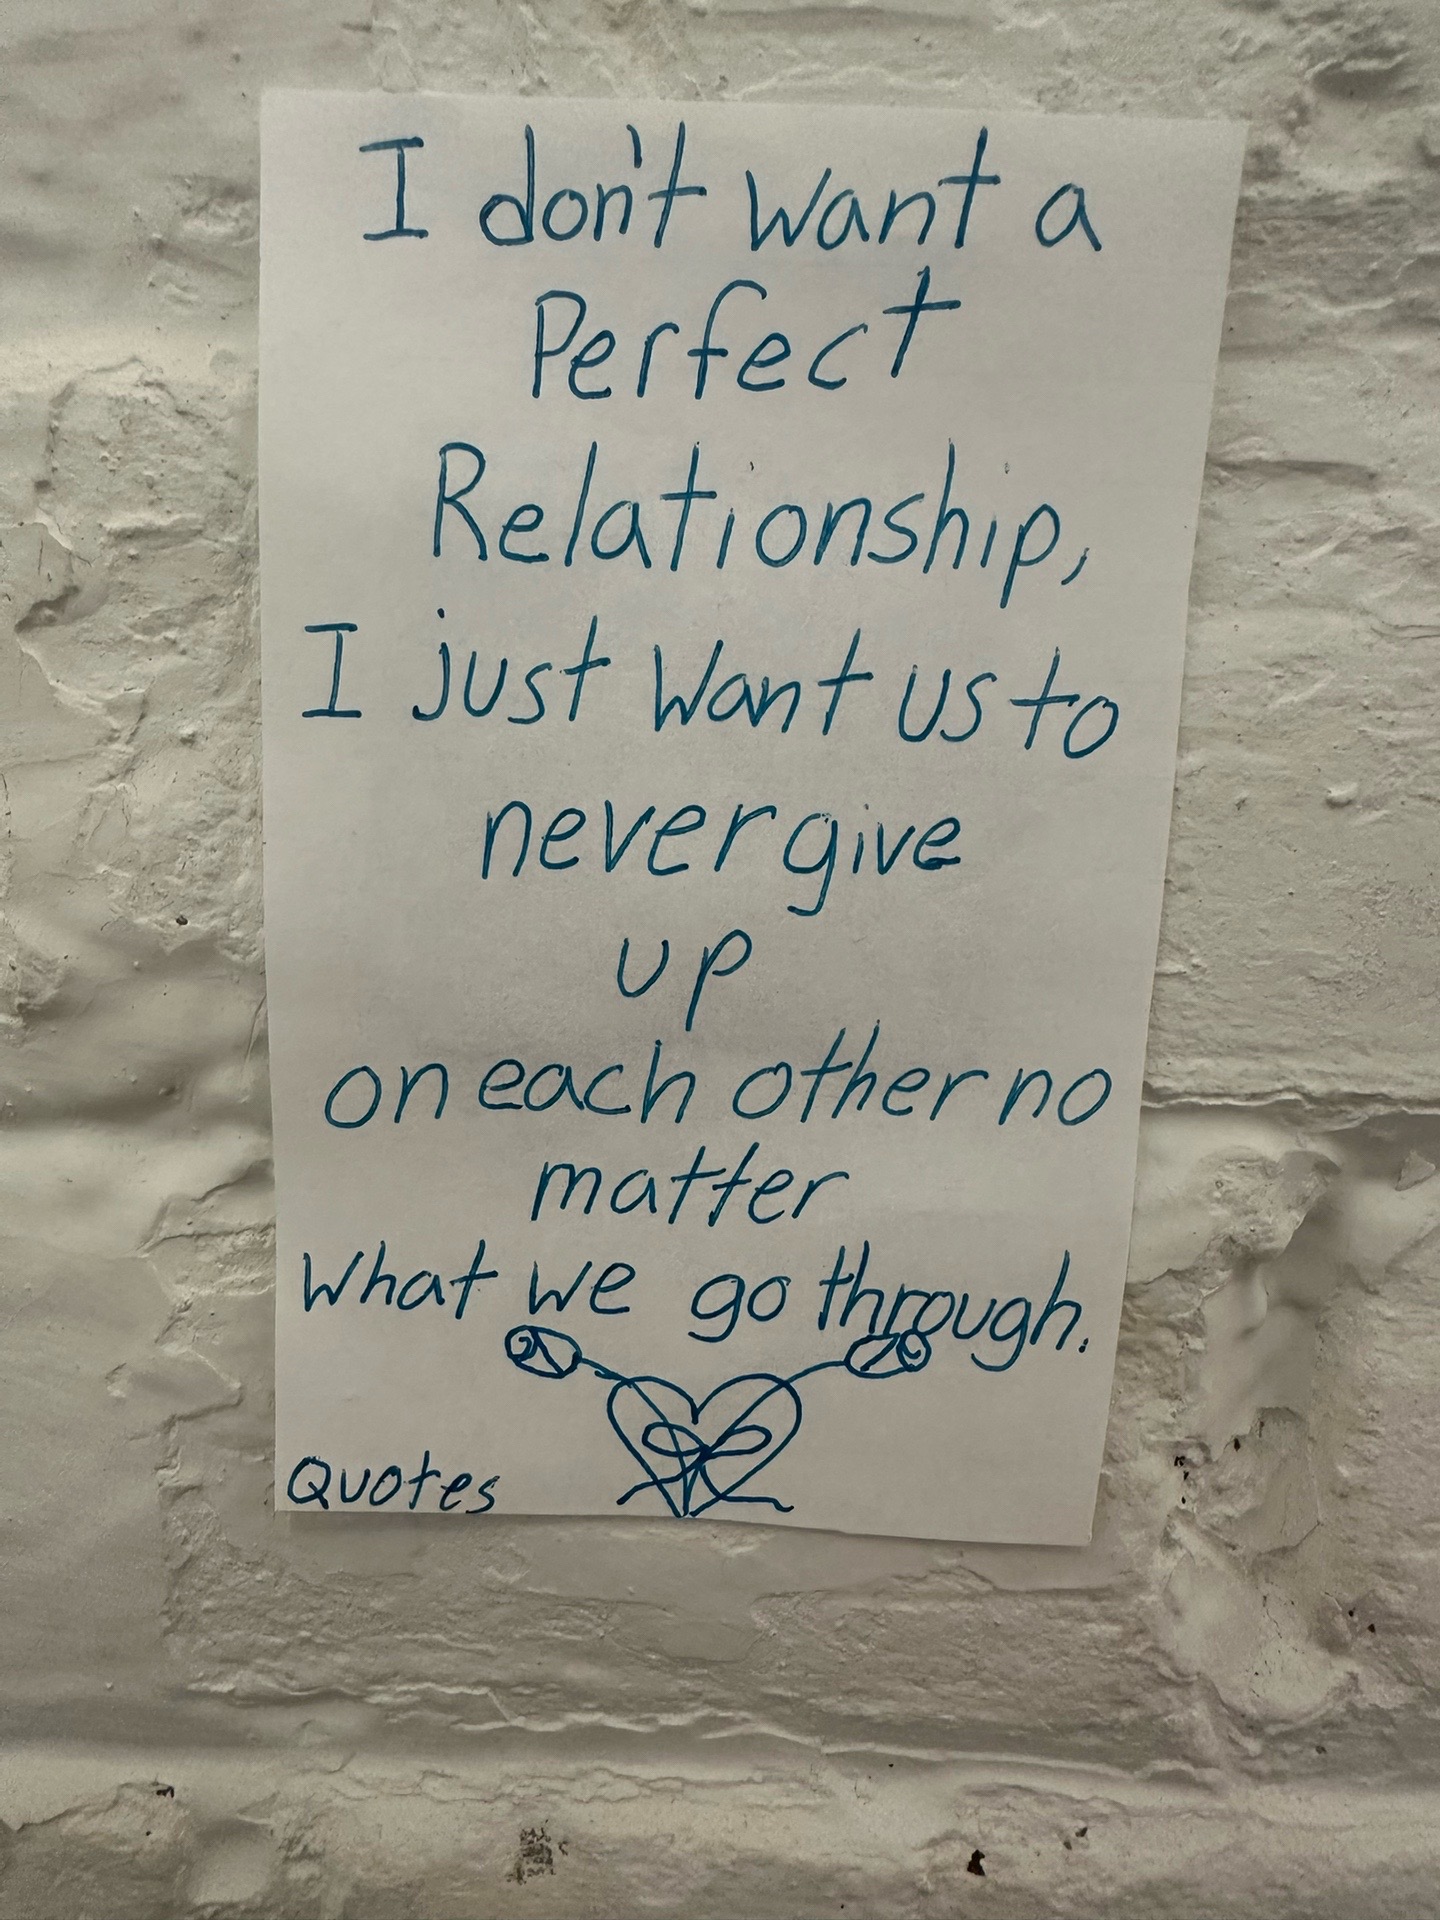 I don't want a
Perfect
Relationship,
I just want us to
never give
up
on each other no
matter
What we go through.
Quotes